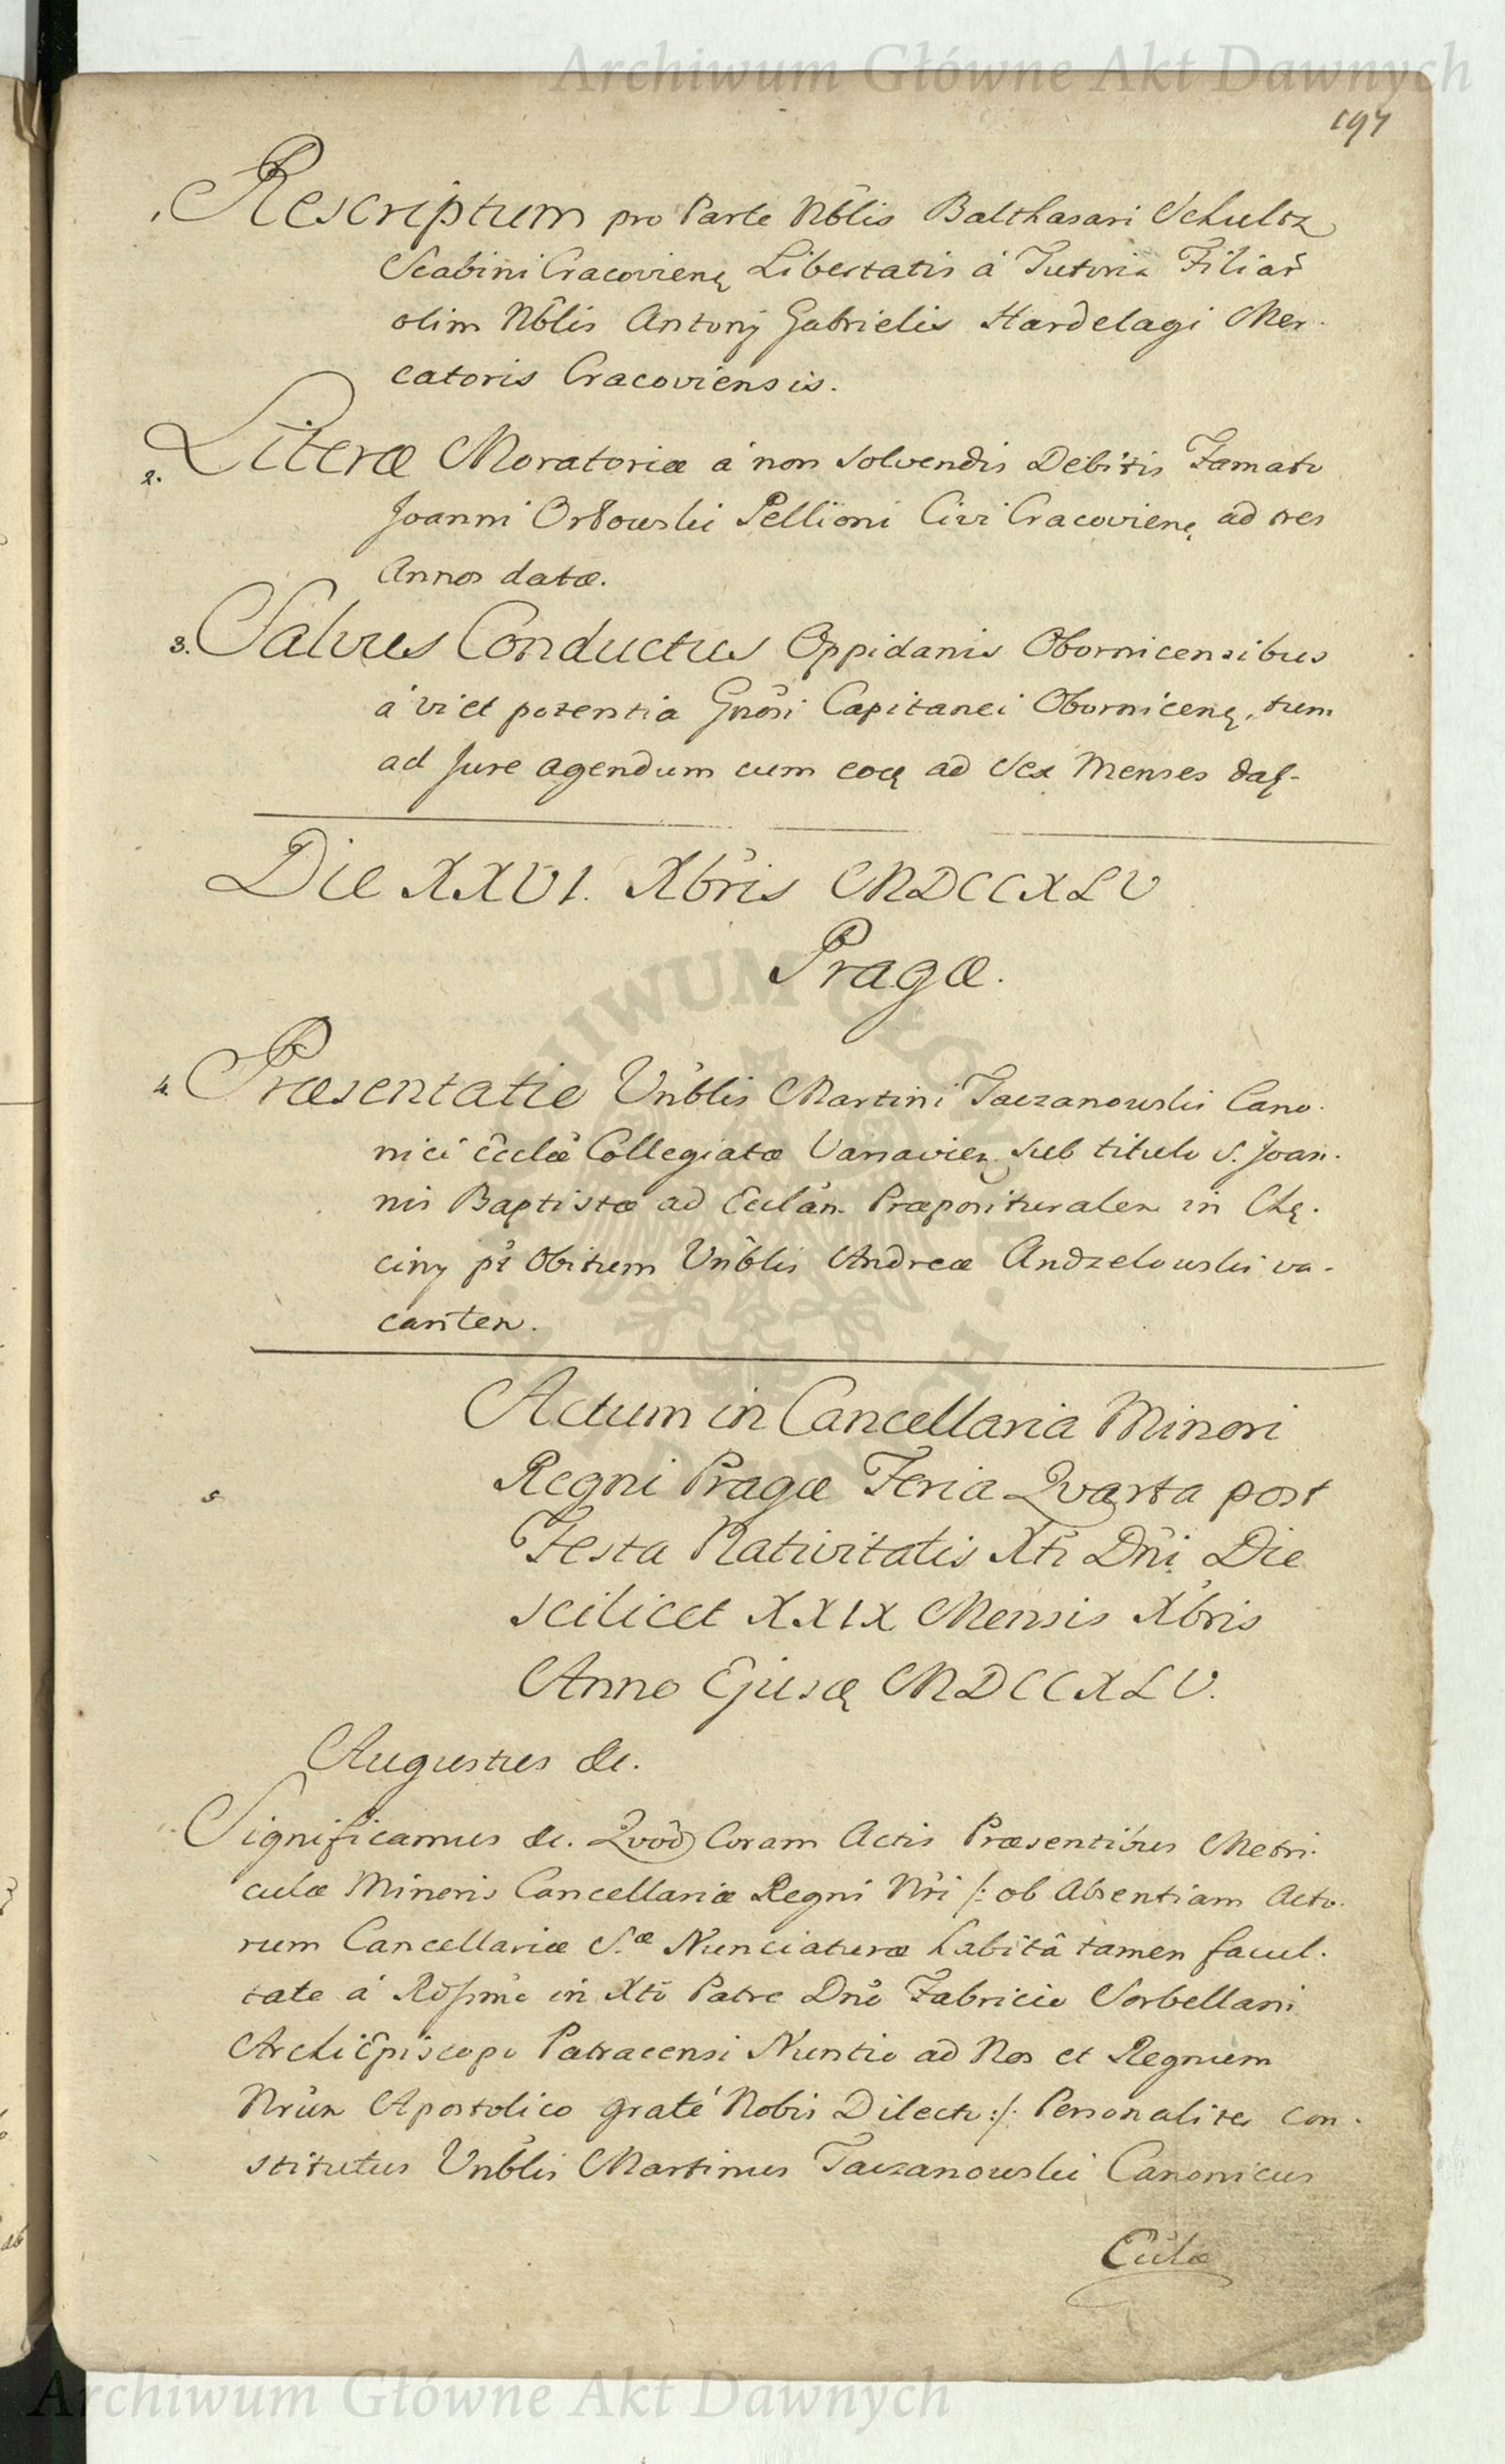 Archiwum Główne Akt Dawnych
197
1. Rescriptum pro Parte Nôlis Balthasari Schultz
Scabini Cracovienę Libertatis á Tutoria Filiar̃
olim Nôlis Antonÿ Gabrielis Hardelagi Mer-
catoris Cracoviensis.
2. Literæ Moratoriæ á non solvendis Debitis Famato
Joanni Orłowski Pellioni Civi Cracovienę ad tres
Annos datæ.
3. Salvus Conductus Oppidanis Obornicensibus
á vi et potentia Gnôsi Capitanei Obornicenę, tum
ad Jure agendum cum eoę ad Sex Menses daę-
Die XXVI. Xbris MDCCXLV
Pragæ.
4. Præsentatio Vnblis Martini Taczanowski Cano-
nici Ecclæ Collegiatæ Varsavien sub titulo S. Joan-
nis Baptistæ ad Ecclân Præposituralem in Chę-
ciny pt Obitum Vnblis Andreæ Andzelowski va-
cantem.
5 Actum in Cancellaria Minori
Regni Pragæ Feria Qvarta post
Festa Nativitatis Xti Dñi Die
scilicet XXIX Mensis Xbris
Anno Ejusę MDCCXLV.
Augustus &c.
Significamus &c. Qvod Coram Actis Præsentibus Metri-
culæ Minoris Cancellariæ Regni Nri /: ob Absentiam Acto-
rum Cancellariæ S.æ Nunciaturæ habitâ tamen facul-
tate á Rdssimo in Xto Patre Dno Fabricio Sorbellani
ArchiEpiscopo Patracensi Nuntio ad Nos et Regnum
Nrum Apostolico graté Nobis Dilecto :/ Personaliter con-
stitutus Vnblis Martinus Taczanowski Canonicus
Ecclæ
ARCHIWUM GŁÓWNE AKT DAWNYCH
Archiwum Główne Akt Dawnych